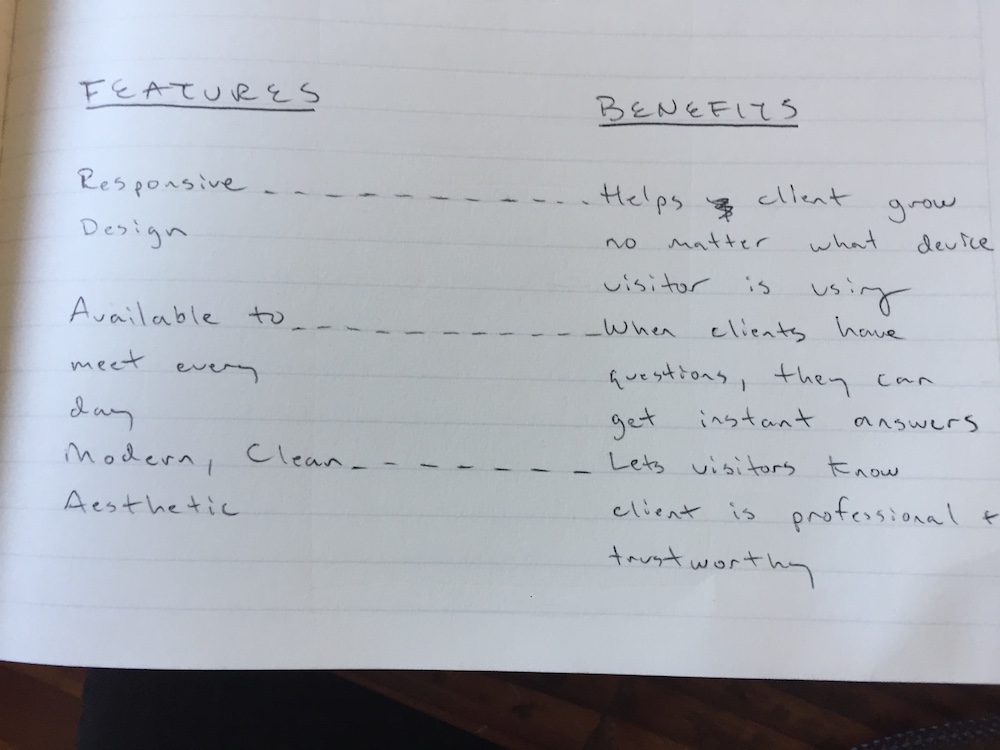 FEATURES
BENEFITS
Responsive ------------ Helps client grow
Design
no matter what device
visitor is using
Available to ------------ When clients have
meet every
questions, they can
day
get instant answers
Modern, Clean ------- Lets visitors know
Aesthetic
client is professional +
trustworthy